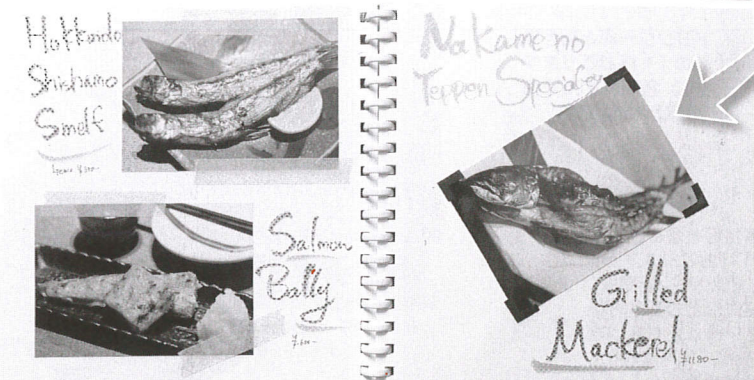 Hokkaido
Shishamo
Smelf
Salmon
Bally
Nakame no
Teppen Specialey
Grilled
Mackerel
¥1180-